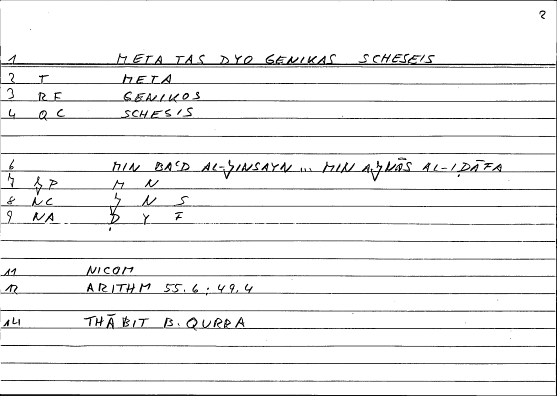 2
1 META TAS DYO GENIKAS SCHESEIS
2 T META
3 RF GENIKOS
4 QC SCHESIS
6 MIN BAʿD AL-ǮINSAYN ... MIN AǮNĀS AL-IḌĀFA
7 ǮP M N
8 NC Ǯ N S
9 NA Ḍ Y F
11 NICOM
12 ARITHM 55.6; 49,4
14 THĀBIT B. QURRA